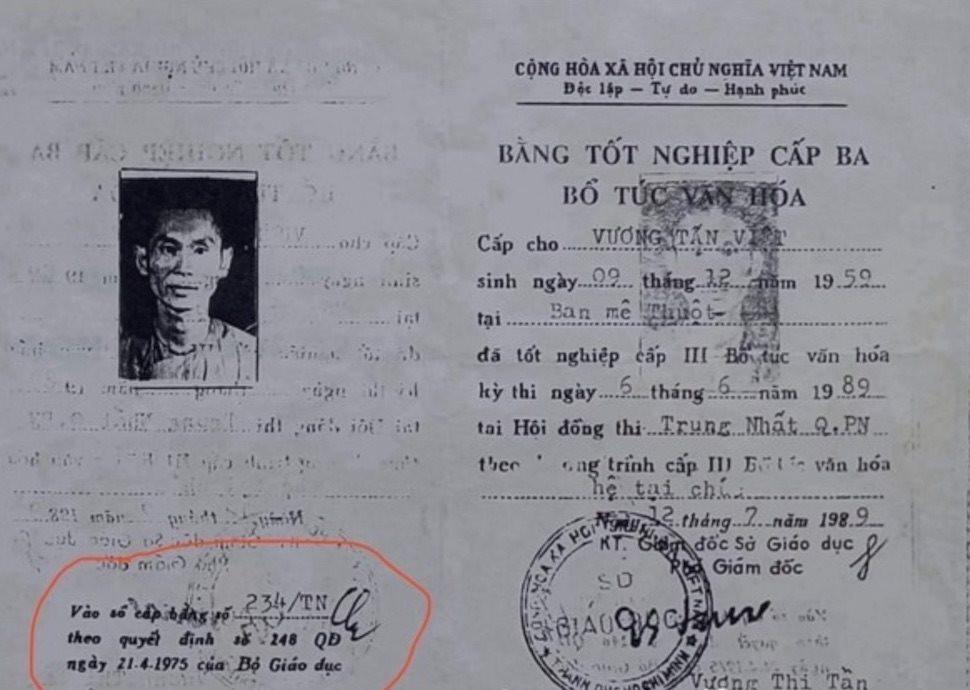 CỘNG HÒA XÃ HỘI CHỦ NGHĨA VIỆT NAM
Độc lập — Tự do — Hạnh phúc
BẰNG TỐT NGHIỆP CẤP BA
BỔ TÚC VĂN HÓA
Cấp cho VƯƠNG TẤN VIỆT
sinh ngày 09 tháng 12 năm 1959
tại Ban mê Thuột
đã tốt nghiệp cấp III Bổ túc văn hóa
kỳ thi ngày 6 tháng 6 năm 1989
tại Hội đồng thi Trung Nhất Q.PN
theo trình cấp III Bổ túc văn hóa
hệ tại
12 tháng 7 năm 1989
KT. Giám đốc Sở Giáo dục
Phó Giám đốc
SỞ
GIÁO DỤC
Vương Thị Tần
Vào sổ cấp bằng số 234/TN
theo quyết định số 248 QĐ
ngày 21.4.1975 của Bộ Giáo dục